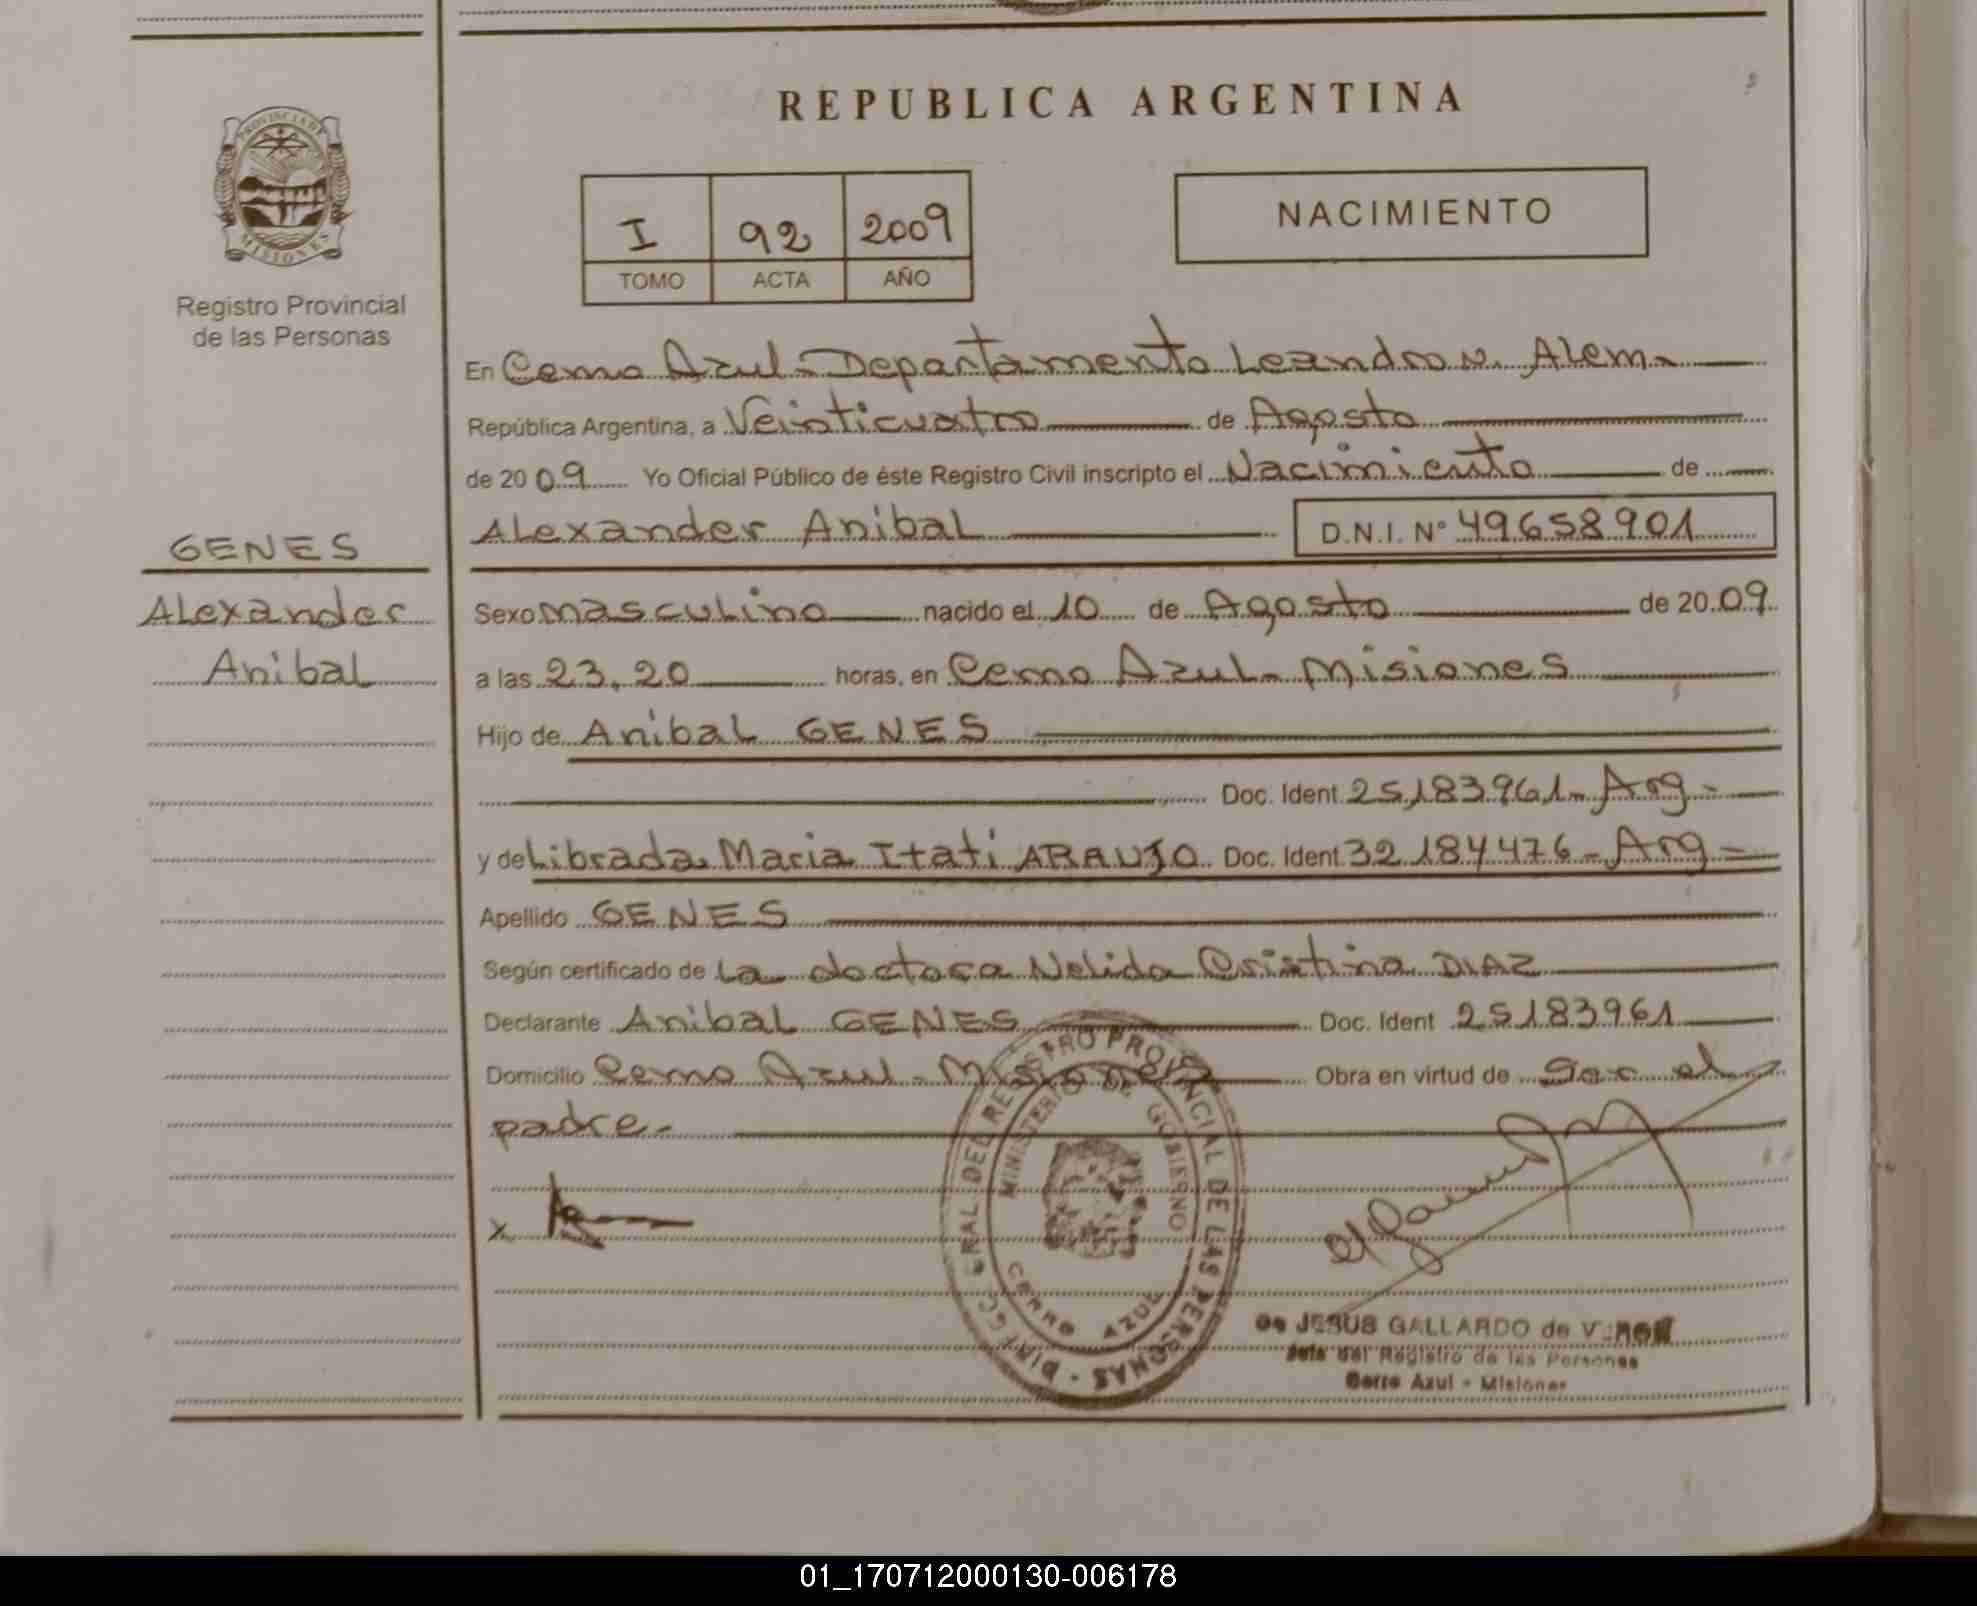 REPUBLICA ARGENTINA
PROVINCIA DE MISIONES
Registro Provincial
de las Personas
I 92 2009
TOMO ACTA AÑO
NACIMIENTO
En Cerro Azul - Departamento Leandro N. Alem -
República Argentina, a Veinticuatro de Agosto
de 2009 Yo Oficial Público de éste Registro Civil inscripto el Nacimiento de
Alexander Anibal D.N.I. N° 49658901
GENES
Alexander
Anibal
Sexo masculino nacido el 10 de Agosto de 2009
a las 23,20 horas, en Cerro Azul - Misiones
Hijo de Anibal GENES
Doc. Ident. 25183961 - Arg -
y de Librada Maria Itati ARAUJO Doc. Ident 32184476 - Arg -
Apellido GENES
Según certificado de La doctora Nelida Cristina DIAZ
Declarante Anibal GENES Doc. Ident 25183961
Domicilio Cerro Azul - Misiones Obra en virtud de Ser el
padre -
x
REGISTRO PROVINCIAL DE LAS PERSONAS
MINISTERIO DE GOBIERNO
CERRO AZUL
JESUS GALLARDO de
Jefe del Registro de las Personas
Cerro Azul - Misiones
01_170712000130-006178